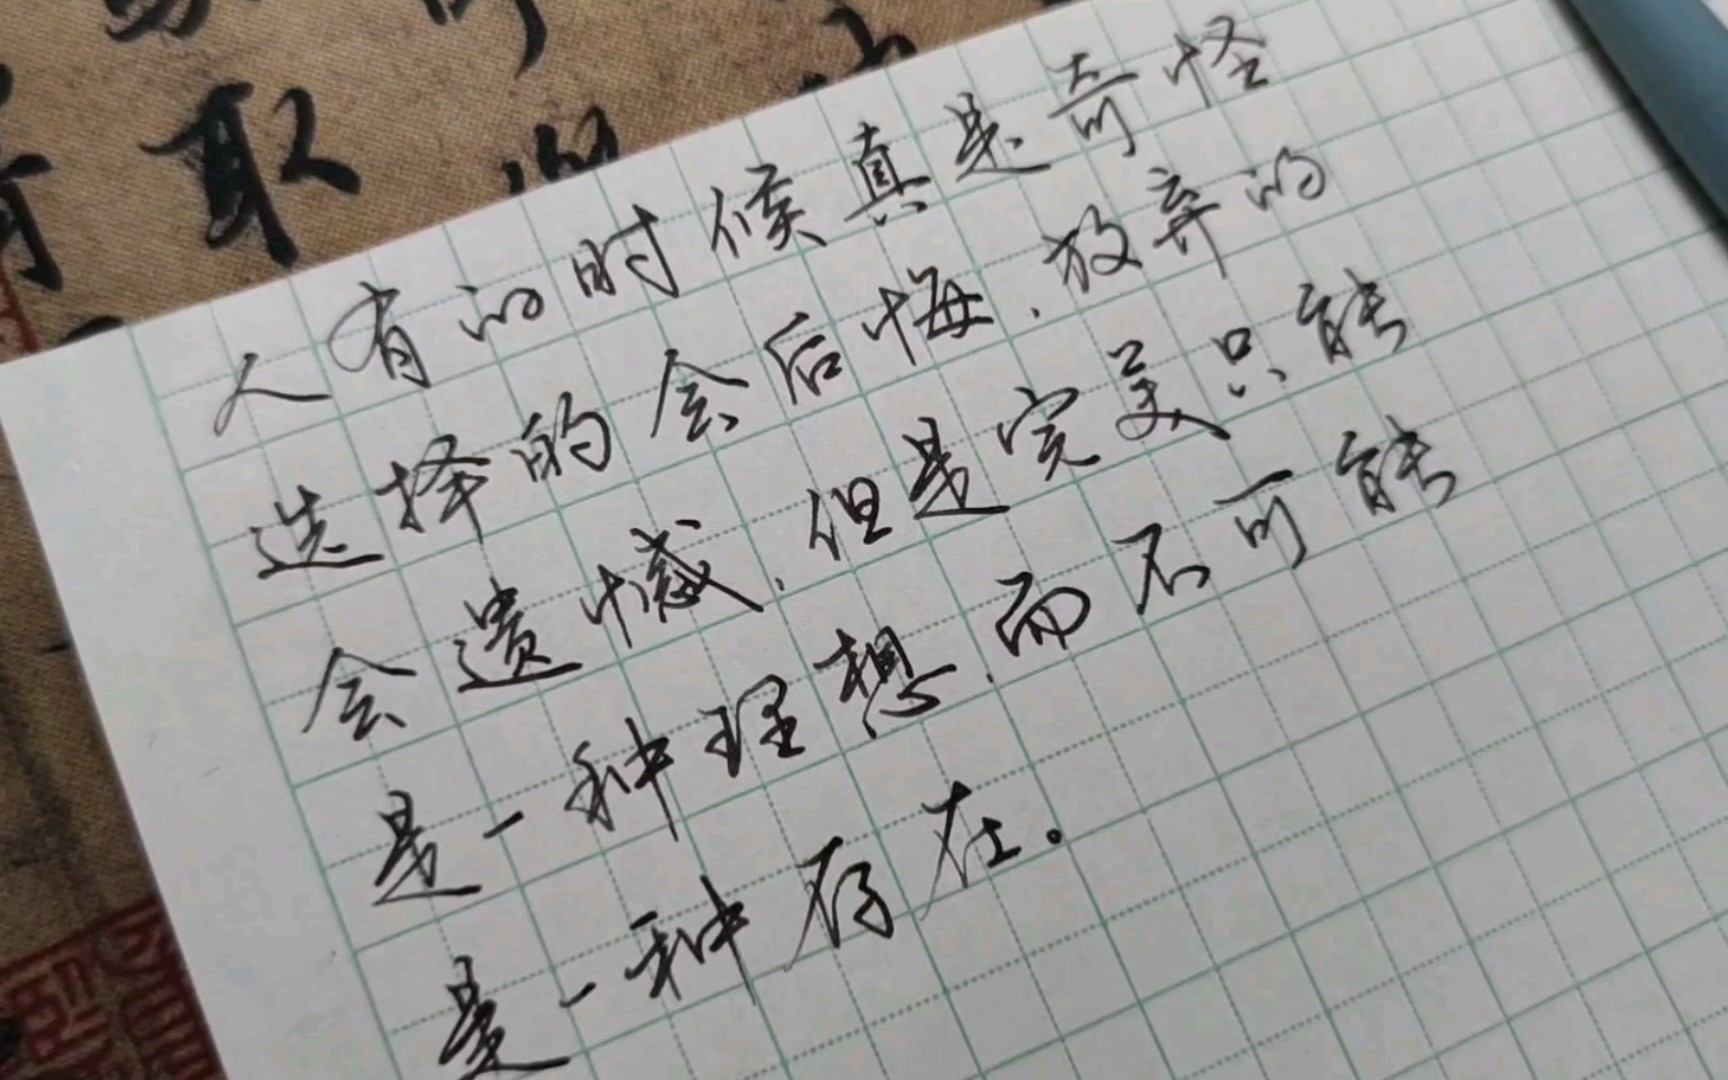 取
人有的时候真是奇怪
选择的会后悔.放弃的
会遗憾.但是完美只能
是一种理想.而不可能
是一种存在。